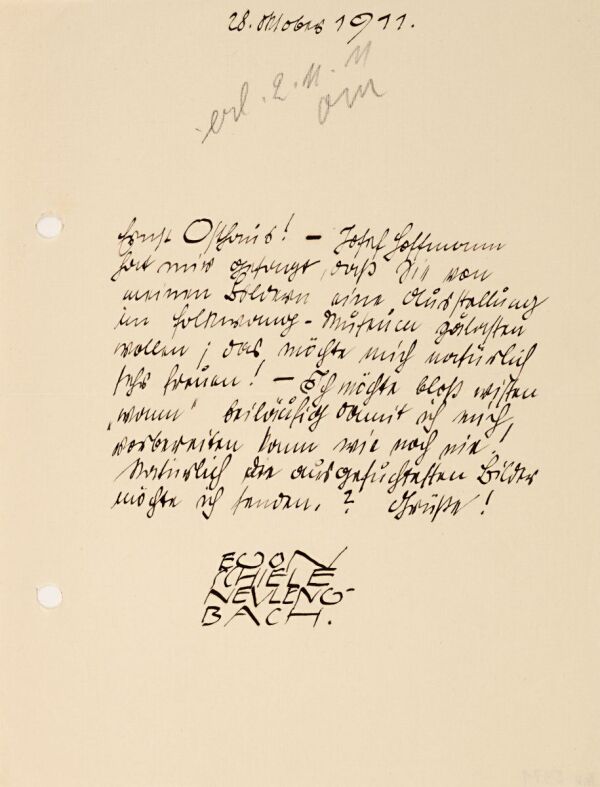 28. Oktober 1911.
erl. 2. 11. 11
Ernst Osthaus! — Josef Hoffmann
hat mir gesagt, daß Sie von
meinen Bildern eine Ausstellung
im Folkwang-Museum
wollen; das möchte mich natürlich
sehr freuen! — Ich möchte bloß wissen
„wann“ beiläufig damit ich mich,
vorbereiten kann wie noch nie!
Natürlich die ausgesuchtesten Bilder
möchte ich senden. ? Grüße!
EGON
SCHIELE
NEVLENG-
BACH.